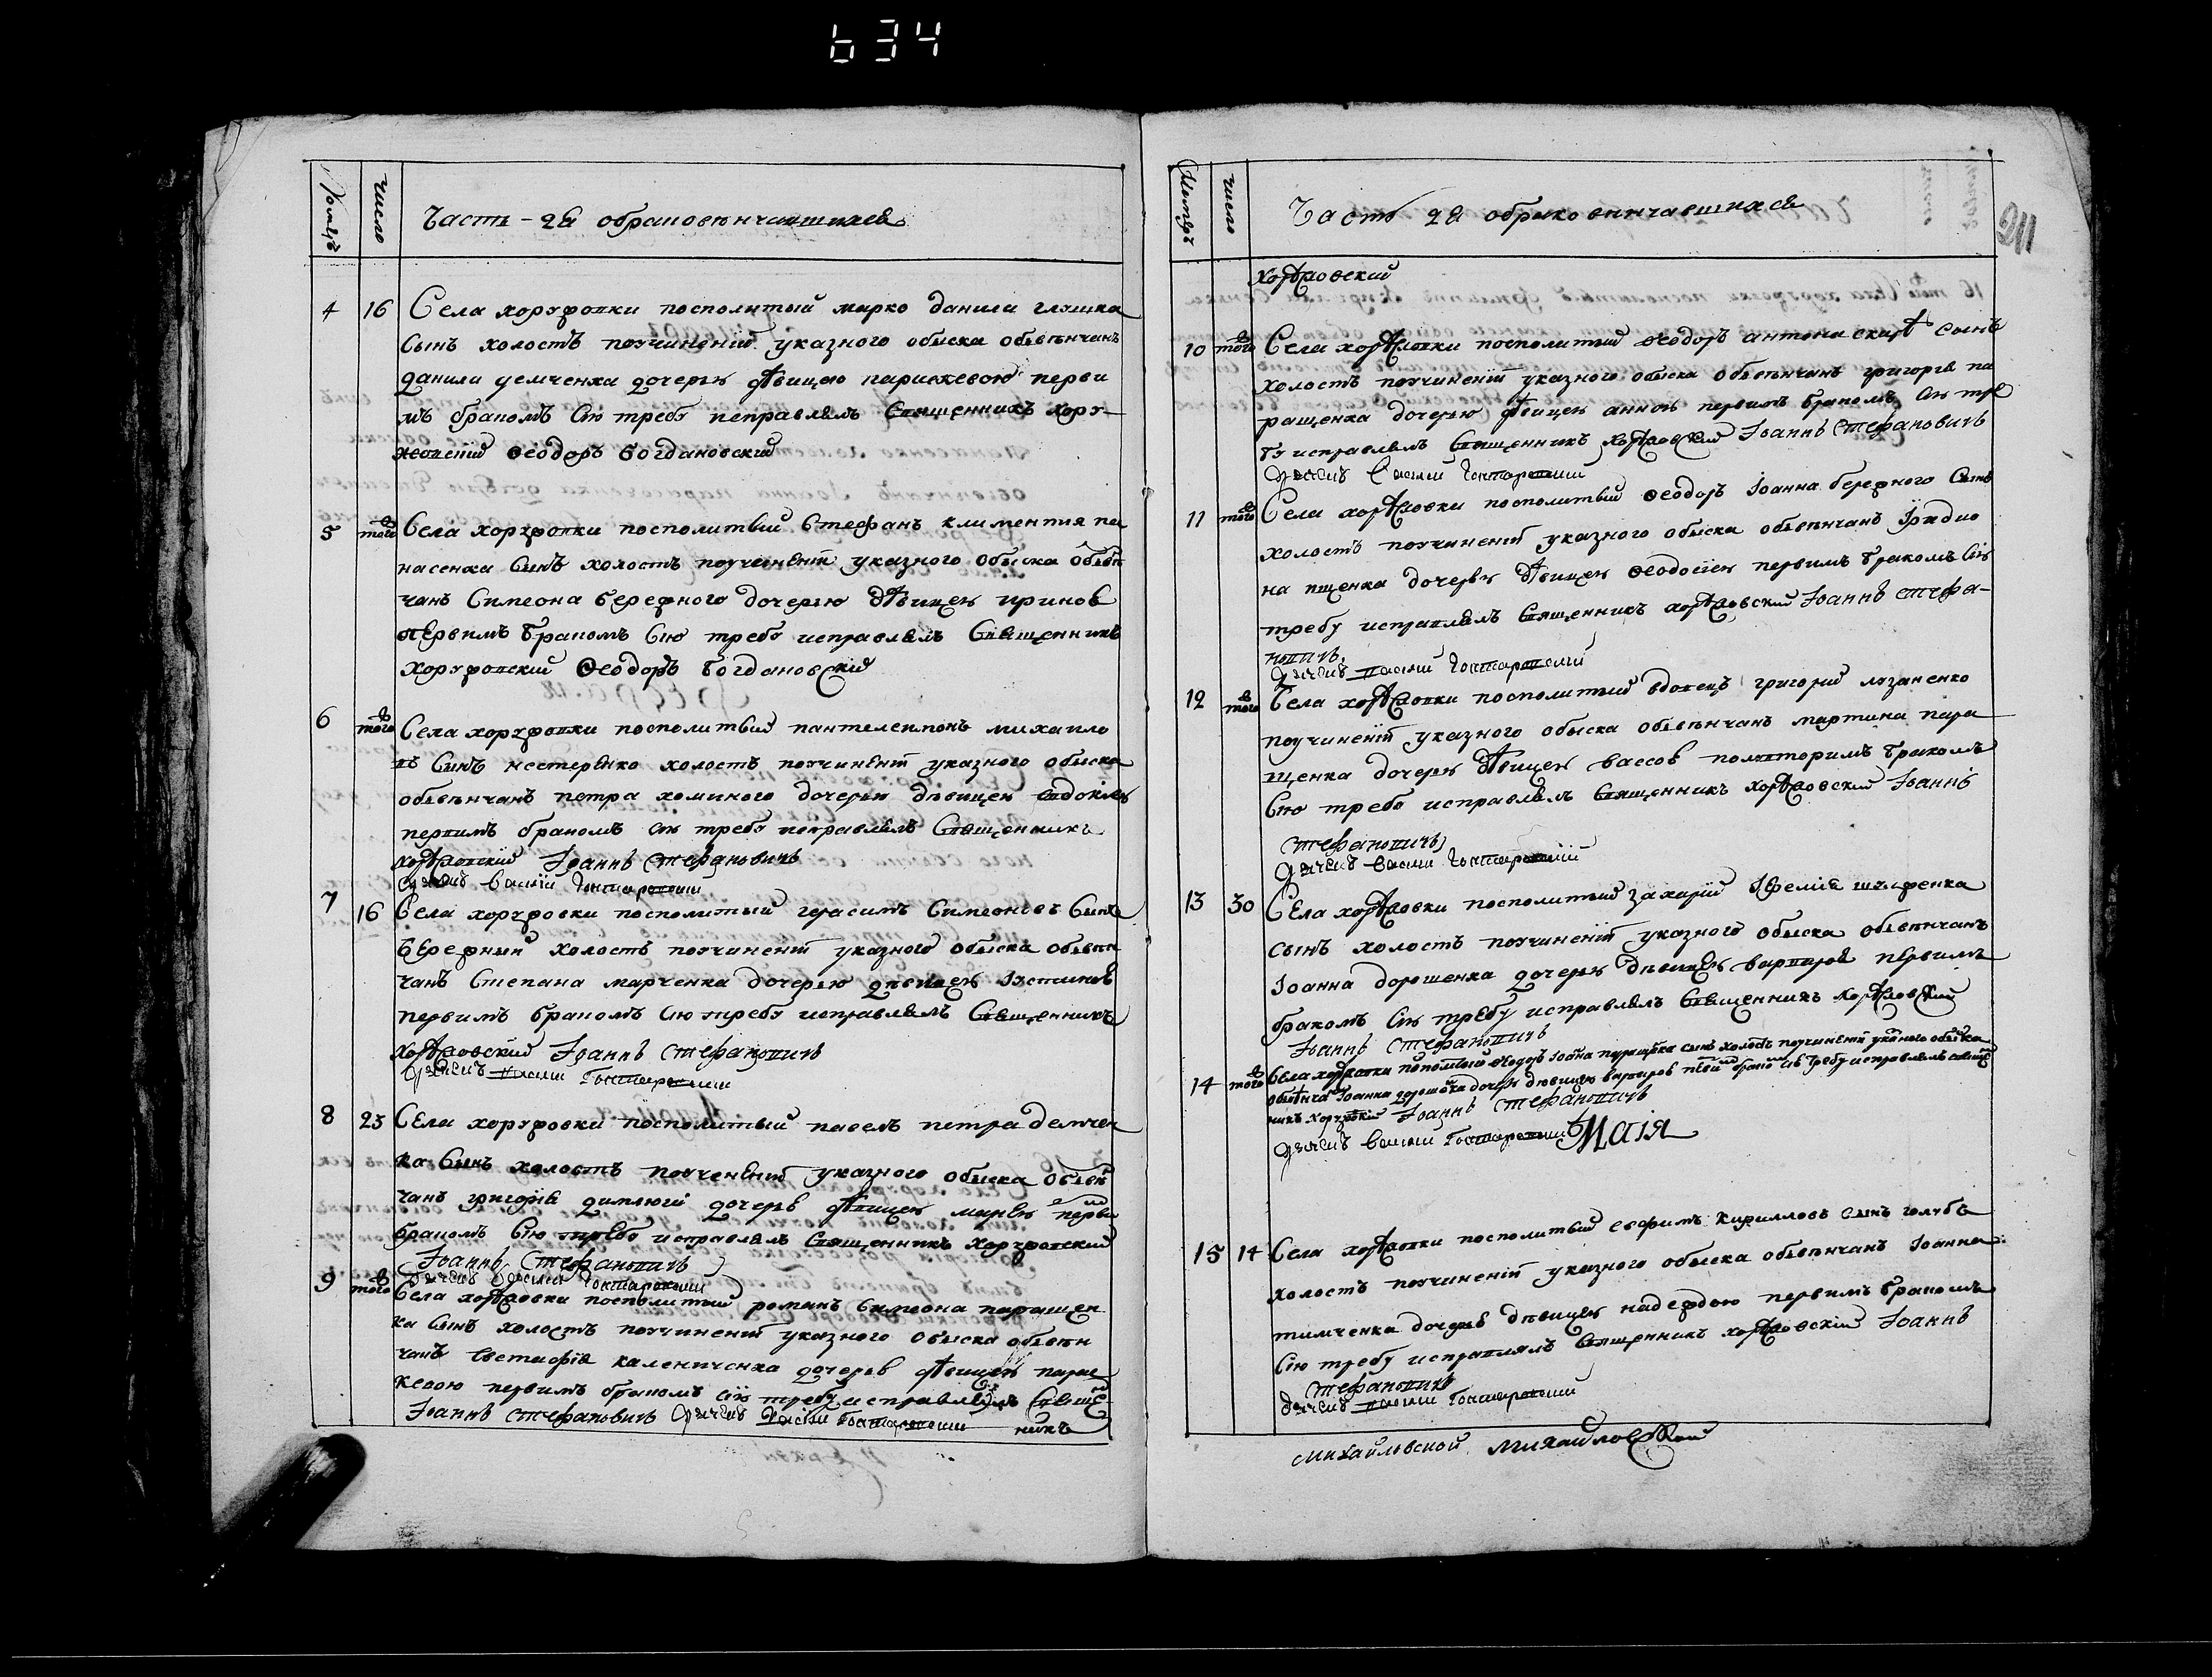 634
номеръ число Часть - 2я обраковѣнчавшихся
4 16 Села хоружовки посполитый марко данила глушка
сынъ холостъ поучиненій указного обыска обвѣнчанъ
данила демченка дочерью дѣвицею парискевою перви
мъ бракомъ Сию требу исправлялъ Священникъ хору-
жовскій Ѳеодоръ Богдановский
5 того Села хоружовки посполитый Стефанъ климентия па
насенка Сынъ холостъ поучиненій указного обыска обвѣн
чанъ Симеона бережного дочерью дѣвицею ириною
первимъ бракомъ Сию требу исправлялъ Священникъ
хоружовский Ѳеодоръ Богдановский
6 того Села хоружовки посполитый пантелеимонъ михаило
въ Сынъ нестеренко холостъ поучиненій указного обыска
обвѣнчанъ петра хоминого дочерью дѣвицею евдокиею
первимъ бракомъ сию требу исправлялъ Священникъ
хоружовский Іоаннъ Стефановичъ
дячекъ Василій Гонтаровский
7 16 Села хоружовки посполитый герасимъ Симеоновъ Сынъ
бережный холостъ поучиненій указного обыска обвѣн
чанъ Степана марченка дочерью дѣвицею Іустиною
первимъ бракомъ Сию требу исправлялъ Священникъ
хоружовский Іоаннъ Стефановичъ
дячекъ Василій Гонтаровский
8 23 Села хоружовки посполитый павелъ петра демчен
ка Сынъ холостъ поучиненій указного обыска обвѣн
чанъ григорія дочерью дѣвицею перви
бракомъ Сию требу исправлялъ Священникъ хоружовский
Іоаннъ Стефановичъ
дячекъ Василій Гонтаровский
9 того Села хоружовки посполитый романъ Симеона паращен
ка Сынъ холостъ поучиненій указного обыска обвѣн
чанъ Евстафія калениченка дочерью дѣвицею парас
кевою первимъ бракомъ сию требу исправлялъ Свяще
Іоаннъ Стефановичъ дячекъ Василій Гонтаровский никъ
номеръ число Часть 2я обрако венчавшихся
211
хоружовский
10 того Села хоружовки посполитый Ѳеодоръ антона сынъ
холостъ поучиненій указного обыска обвѣнчанъ григорія па
ращенка дочерью дѣвицею анною первимъ бракомъ Сию тре
бу исправлялъ Священникъ хоружовский Іоаннъ Стефановичъ
дячекъ Василій Гонтаровский
11 того Села хоружовки посполитый Ѳеодоръ Іоанна бережного Сынъ
холостъ поучиненій указного обыска обвѣнчанъ Іродио
на ищенка дочерью дѣвицею Ѳеодосіею первимъ бракомъ Сию
требу исправлялъ Священникъ хоружовский Іоаннъ Стефа-
новичъ
дячекъ Василій Гонтаровский
12 того Села хоружовки посполитый вдовецъ григорий лазаненко
поучиненій указного обыска обвѣнчанъ мартина пара
щенка дочерью дѣвицею вассою повторимъ бракомъ
Сию требу исправлялъ Священникъ хоружовский Іоаннъ
Стефановичъ
дячекъ Василий Гонтаровский
13 30 Села хоружовки посполитый захарій
сынъ холостъ поучиненій указного обыска обвѣнчанъ
Іоанна дорошенка дочерью дѣвицею варварою первимъ
бракомъ Сию требу исправлялъ Священникъ хоружовский
Іоаннъ Стефановичъ
14 того Села хоружовки посполитый Ѳеодоръ Іоанна паращенка сынъ холостъ поучиненій указного обыска
обвѣнча Іоанна дорошенка дочерью дѣвицею варварою первимъ бракомъ сию требу исправлялъ священ
никъ хоружовский Іоаннъ Стефановичъ
дячекъ Василий Гонтаровский
Маія
15 14 Села хоружовки посполитый евфимъ кирилловъ сынъ голубъ
холостъ поучиненій указного обыска обвѣнчанъ Іоанна
тимченка дочерью дѣвицею надеждою первимъ бракомъ
Сію требу исправлялъ Священникъ хоружовскій Іоаннъ
Стефановичъ
дячекъ Василий Гонтаровский
михайловской михайловской